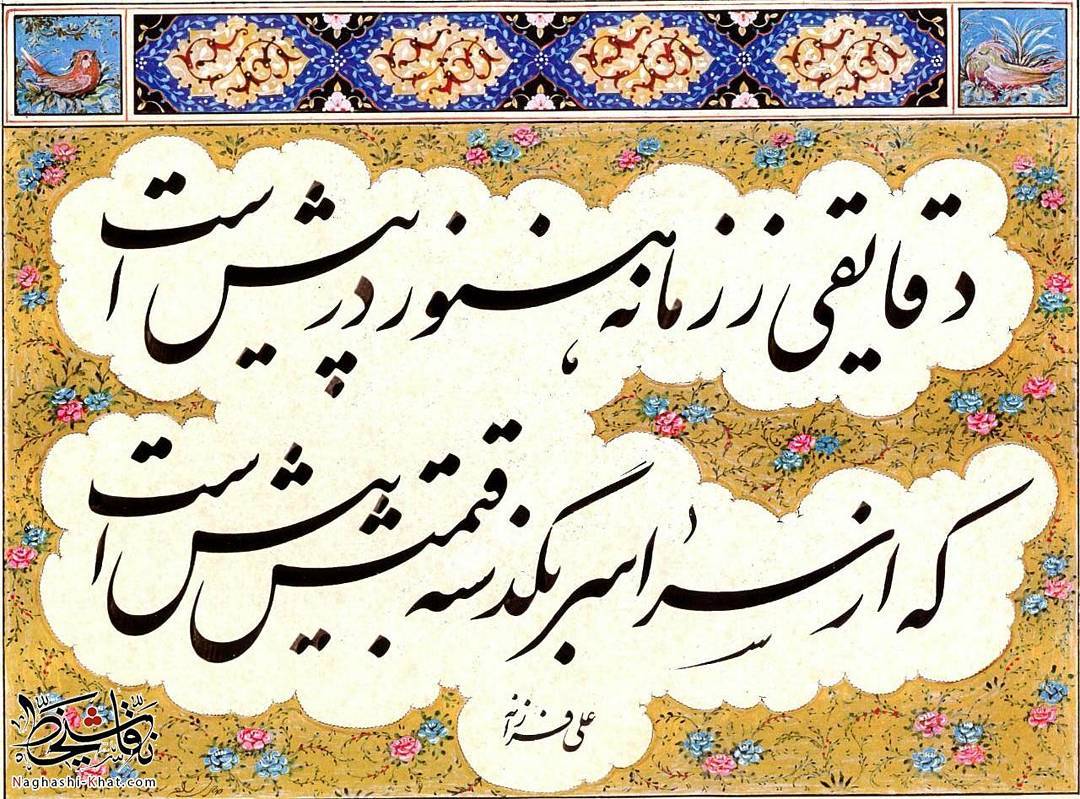 دقایقی ز زمانه هنوز در پیش است
که از سراسر بگذشته قیمتش بیش است
علی فرزانه
نقاشیخط
Naghashi-Khat.com